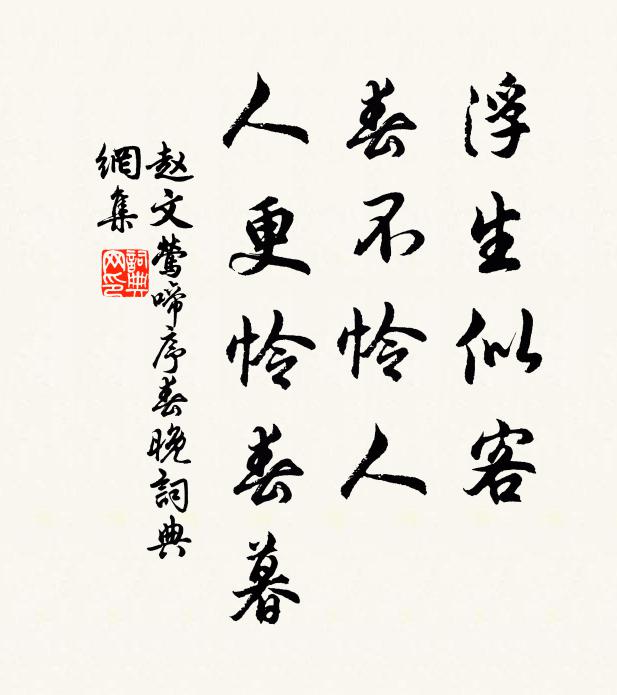 浮生似客
春不怜人
人更怜春暮
赵文莺啼序春晚詞典
網集
詞典
网印